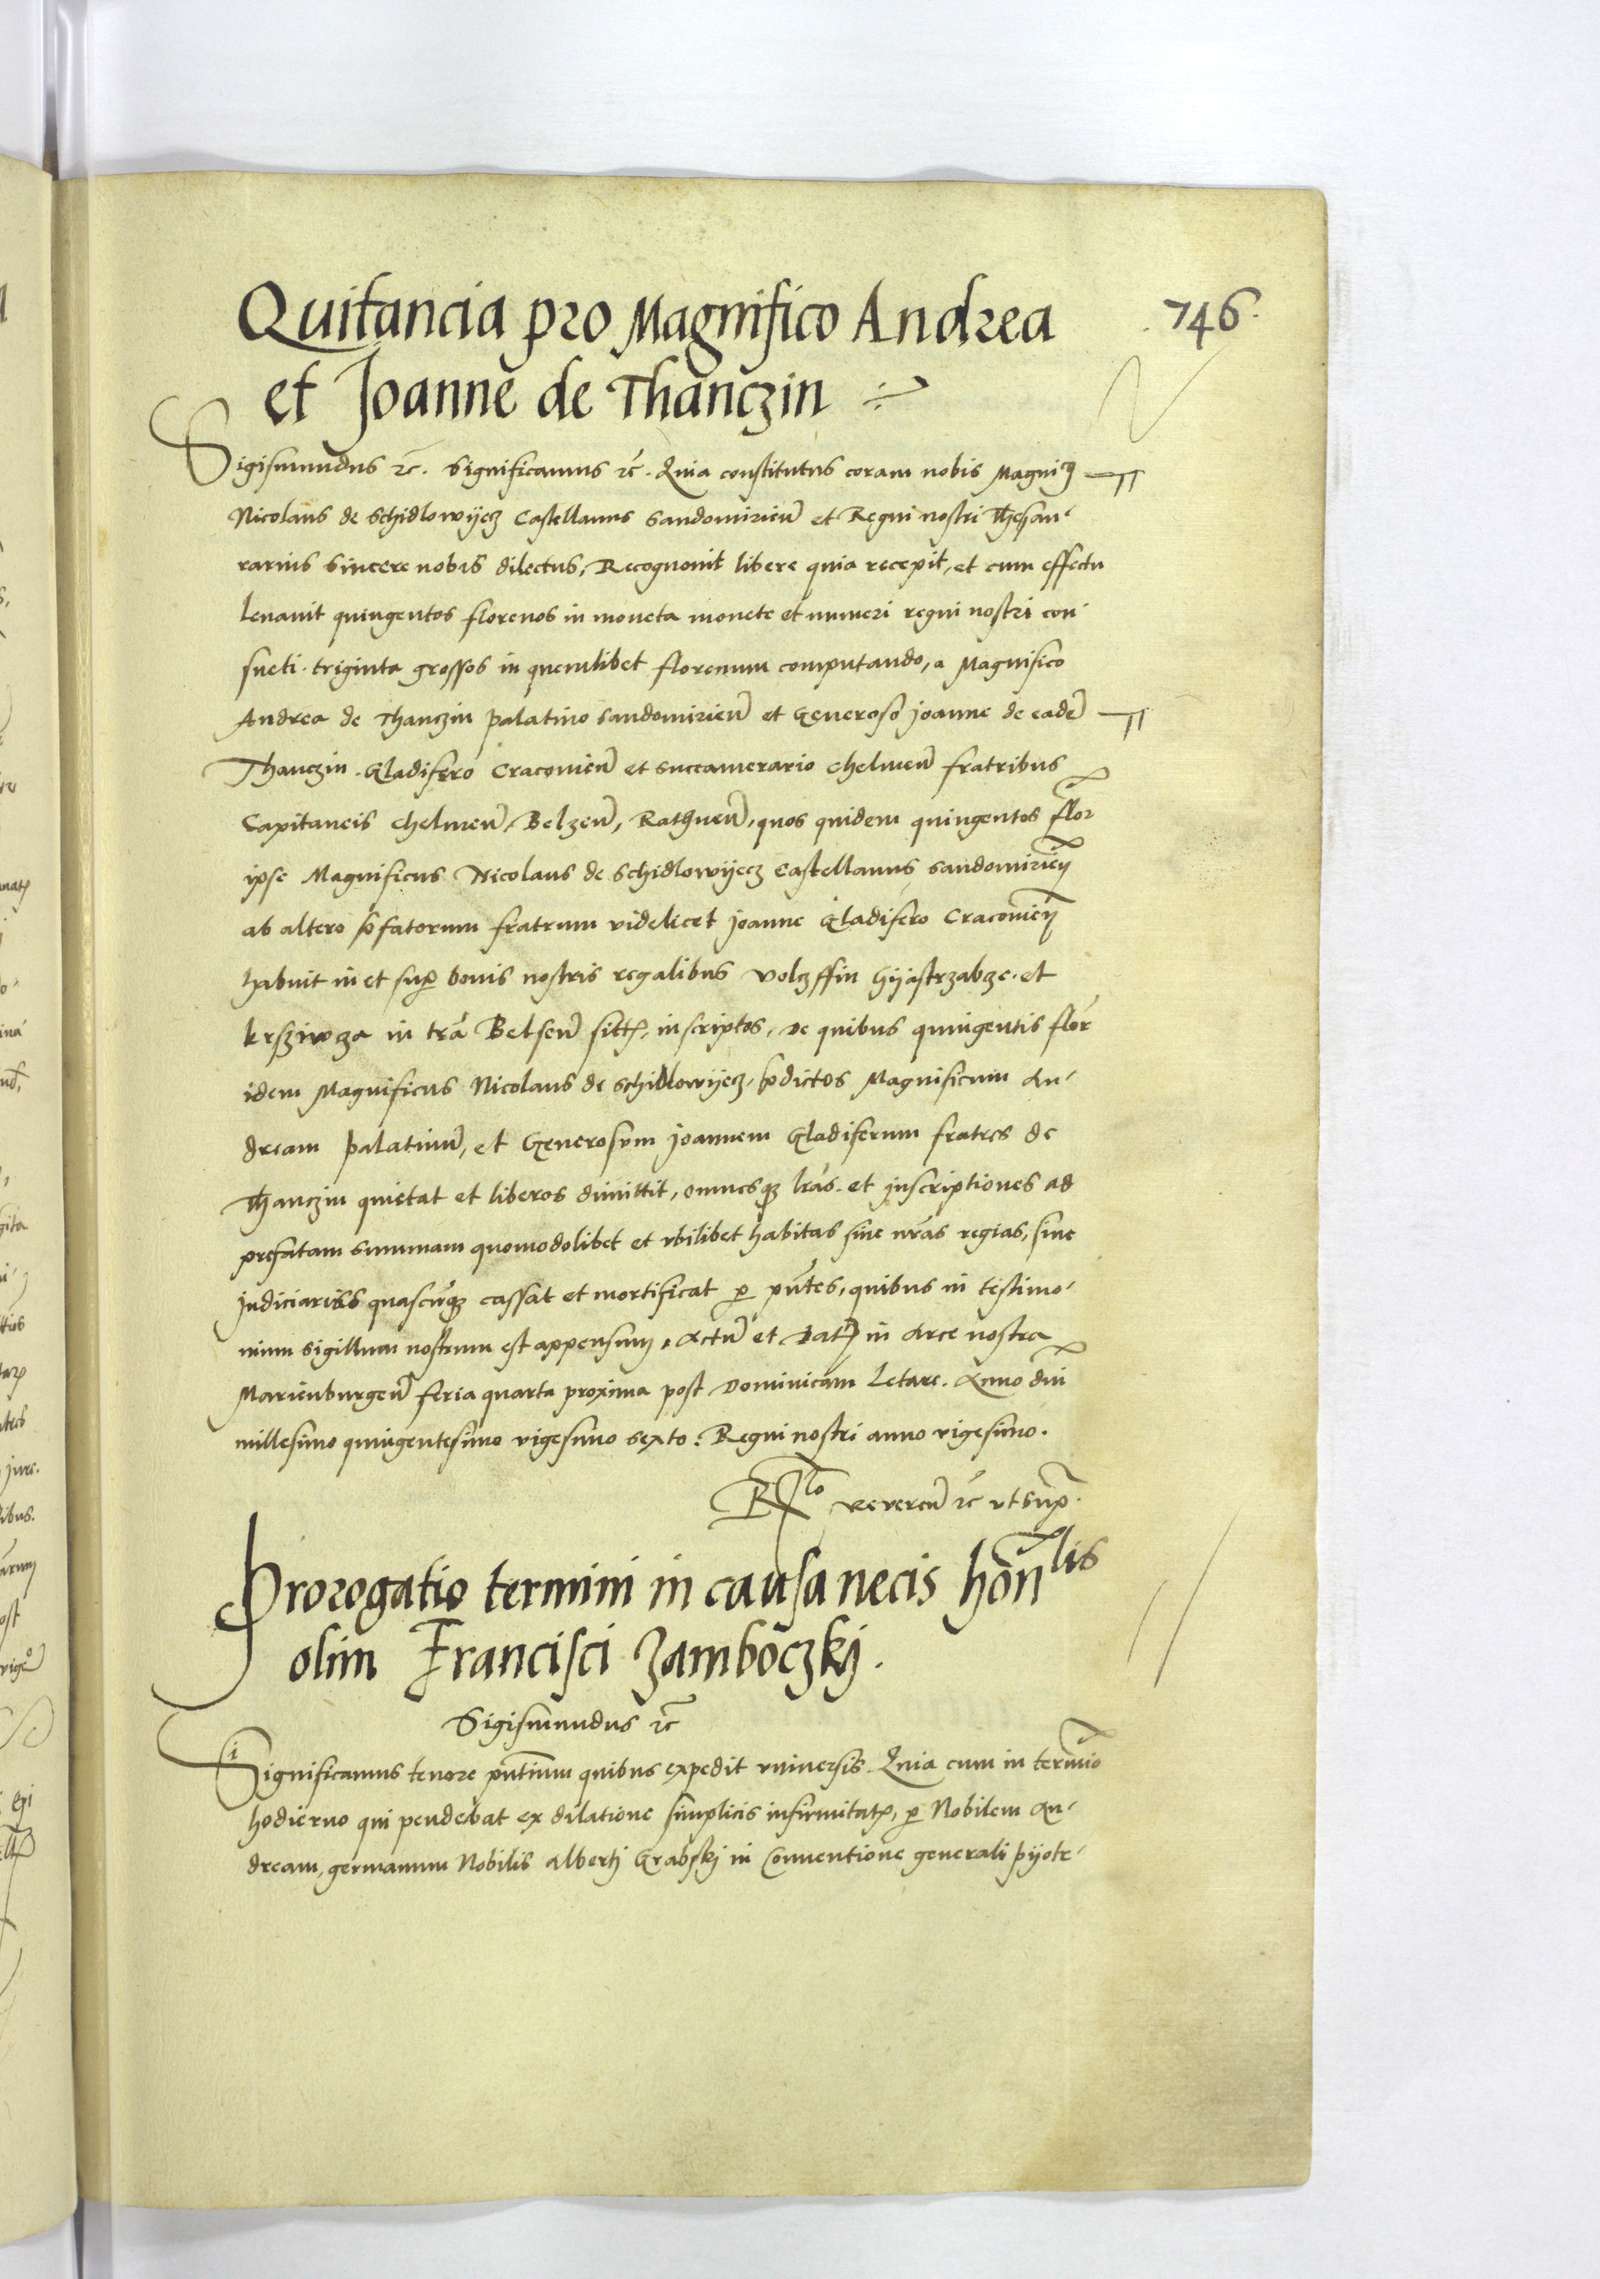 746.
Quitancia pro Magnifico Andrea
et Joanne de Thanczin
Sigismundus rc̄. Significamus rc̄. Quia constitutus coram nobis Magnicꝰ
Nicolaus de Schidlowijecz Castellanus Sandomirień et Regni nostri Thesau-
rarius sincere nobis dilectus, Recognovit libere quia recepit, et cum effectu
levavit quingentos florenos in moneta monete et numeri regni nostri con
sueti. triginta grossos in quemlibet florenum computando, a Magnifico
Andrea de Thanczin palatino Sandomirień et Generoso Joanne de eadē
Thanczin. Gladifero Cracovień et Succamerario Chelmeń fratribus
Capitaneis Chelmeń, Belzeń, Rathneń, quos quidem quingentos flor
ipse Magnificus Nicolaus de Schidlowijecz Castellanus Sandomirieñ
ab altero p̄fatorum fratrum videlicet Joanne Gladifero Cracovieñ
habuit in et sup̄ bonis nostris regalibus Volczffin Hijastrzabze. et
krsziwza in trā Belseń sitt, inscriptos, De quibus quingentis flor
idem Magnificus Nicolaus de Schidlowijecz, p̄dictos Magnificum An-
dream palatinū, et Generosum Joannem Gladiferum fratres de
Thanczin quietat et liberos dimittit, omnesqꝫ lrās. et inscriptiones ad
prefatam summam quomodolibet et ubilibet habitas sive nrās regias, sive
judiciarias quascūqꝫ cassat et mortificat p̱ pn̄tes, quibus in testimo-
nium sigillum nostrum est appensum. Actū et Dat in Arce nostra
Marienburgeń feria quarta proxima post Dominicam Letare. Anno dn̄i
millesimo quingentesimo vigesimo sexto: Regni nostri anno vigesimo.
Rlo Reveren̄ rc̄ ut sup̄.
Prorogatio termini in causa necis hon̄lis
olim Francisci Zamboczkj.
Sigismundus rc̄
Significamus tenore pn̄tium quibus expedit universis. Quia cum in termīo
hodierno qui pendebat ex dilatione simplicis infirmitatꝭ, p̱ Nobilem An-
dream, germanum Nobilis Albertj Grabskj in Conventione generali pijotr-